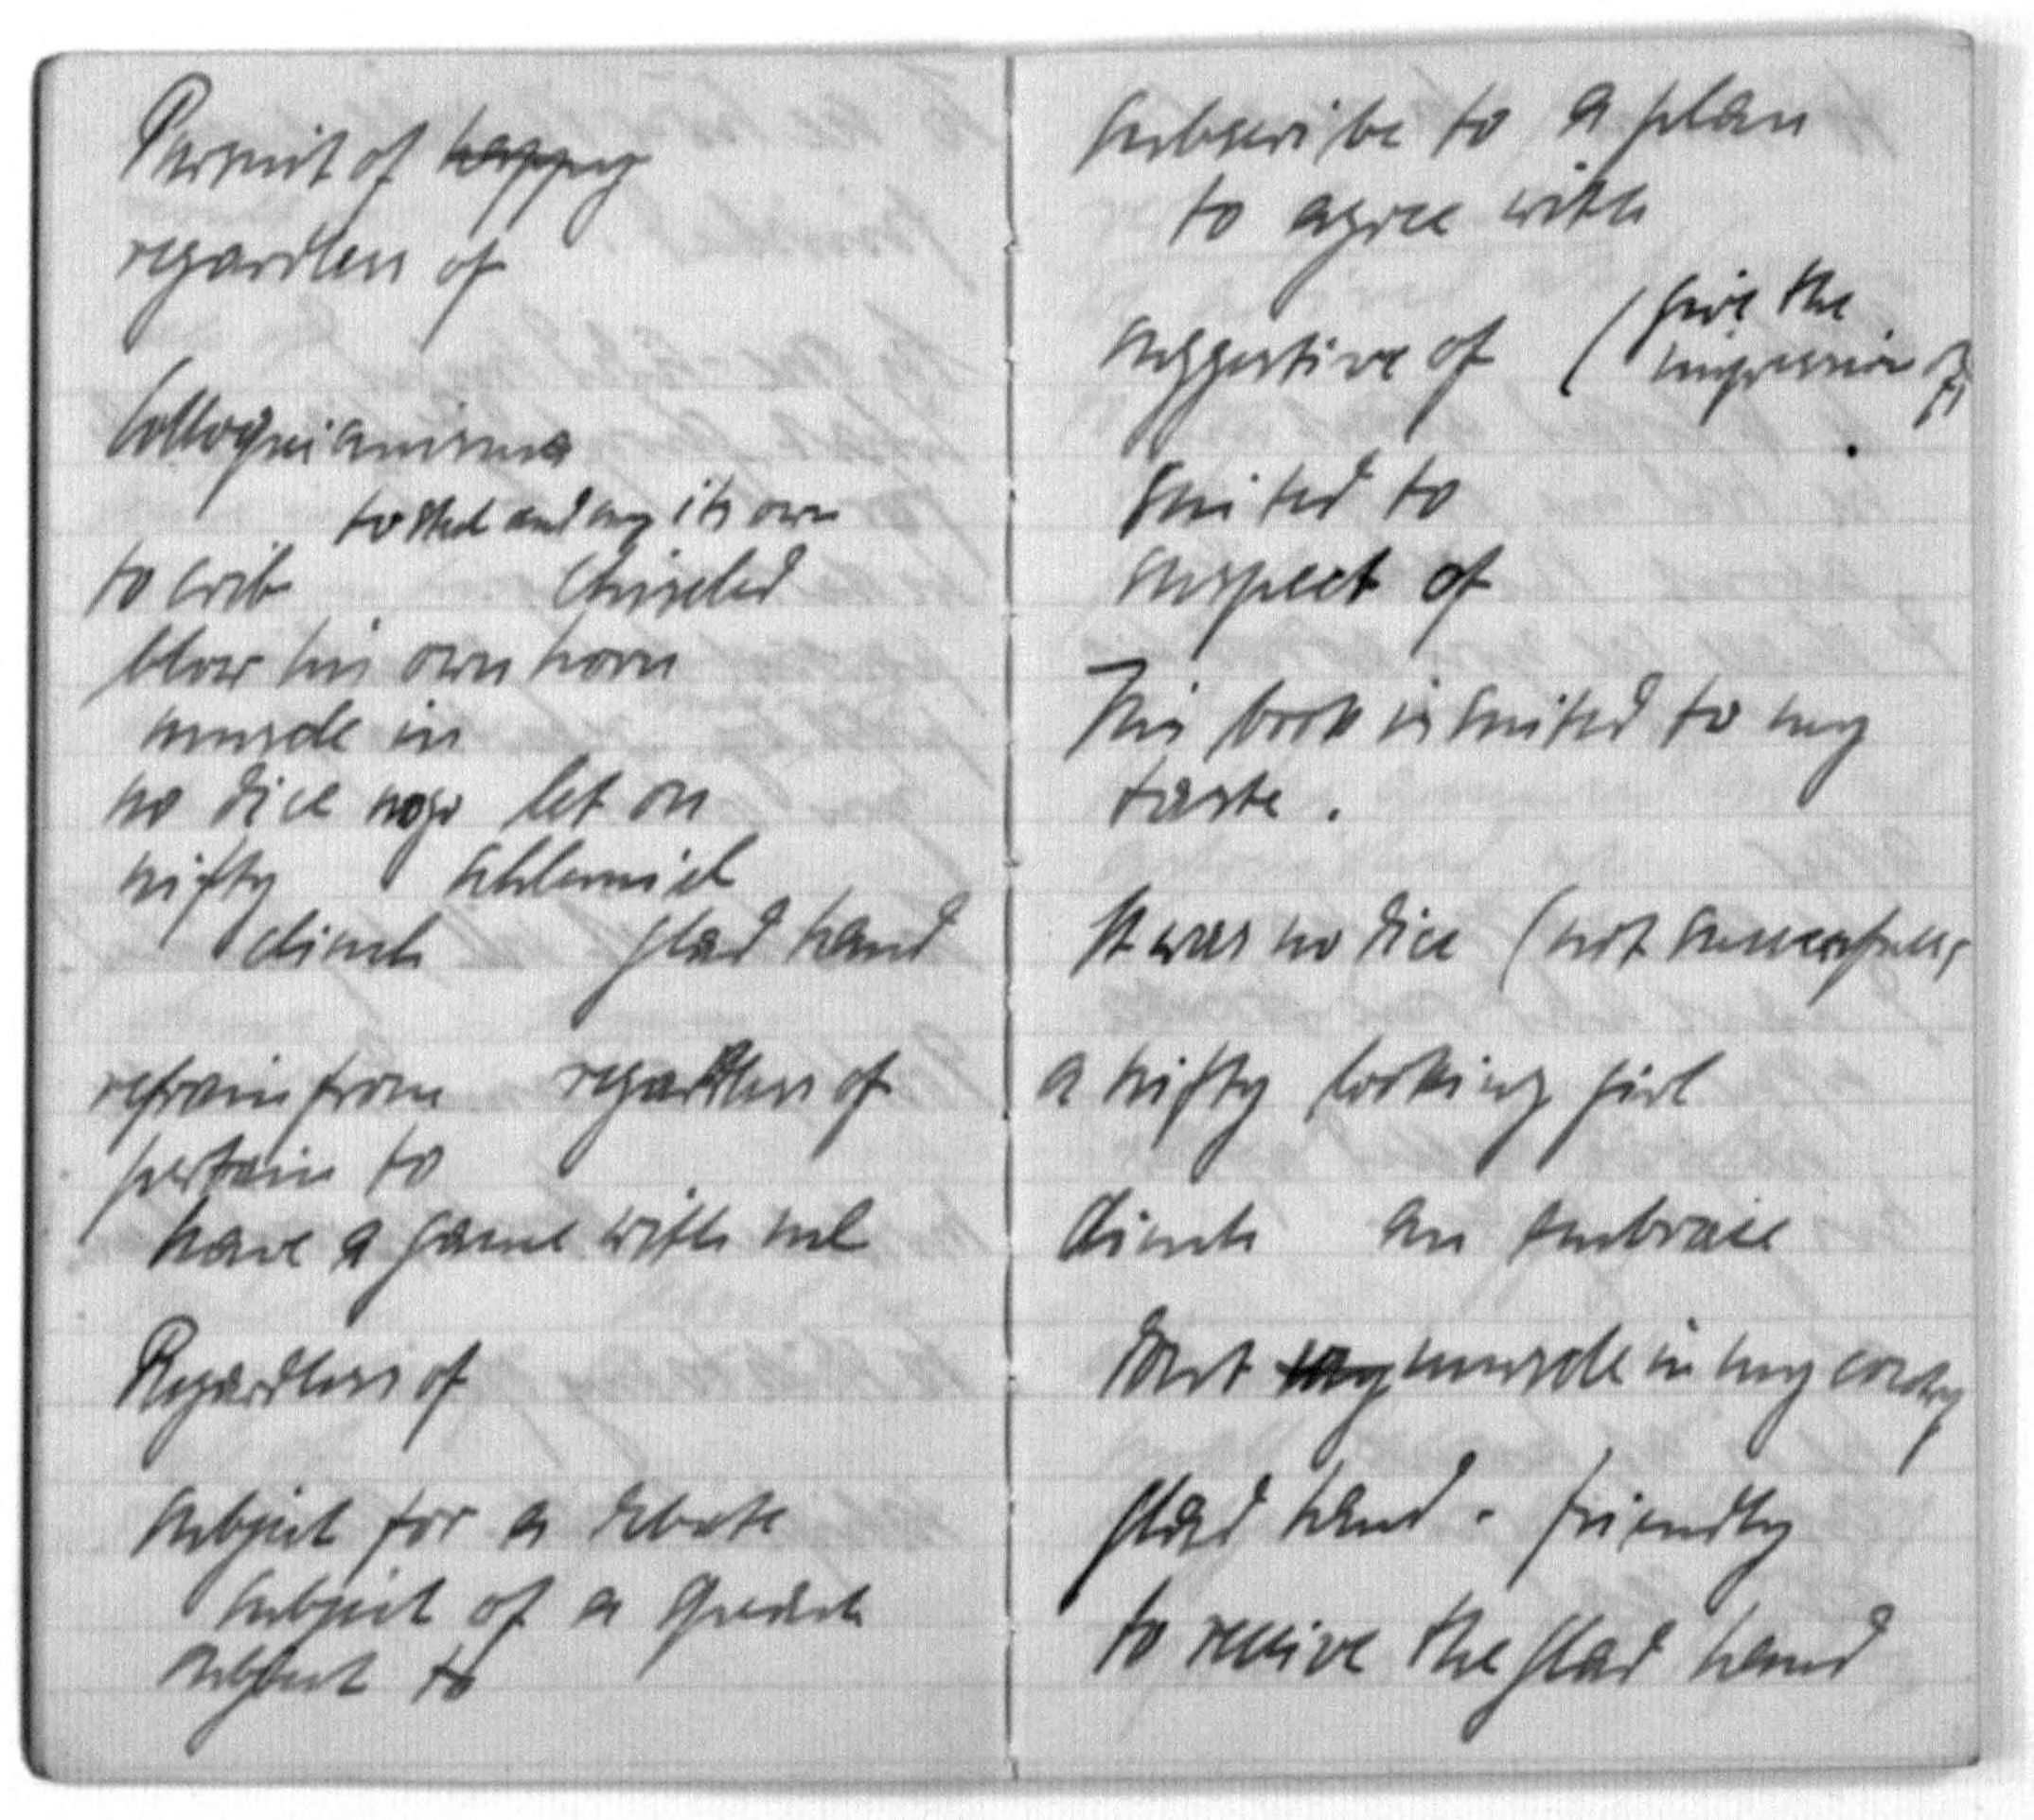 Pursuit of happy
regardless of
Colloquianisms
to steal and say its own
to crib chiseled
blow his own horn
muscle in
no dice nogo let on
nifty schlemiel
clinch glad hand
refrain from regardless of
pertain to
have a game with me
Regardless of
subject for a debate
subject of a speech
subject to
subscribe to a plan
to agree with
give the
suggestive of ( impression of)
suited to
suspect of
This book is suited to my
taste.
It was no dice (not successfull,
a nifty looking girl
clinch an embrace
dont muscle in my
glad hand - friendly
to receive the glad hand